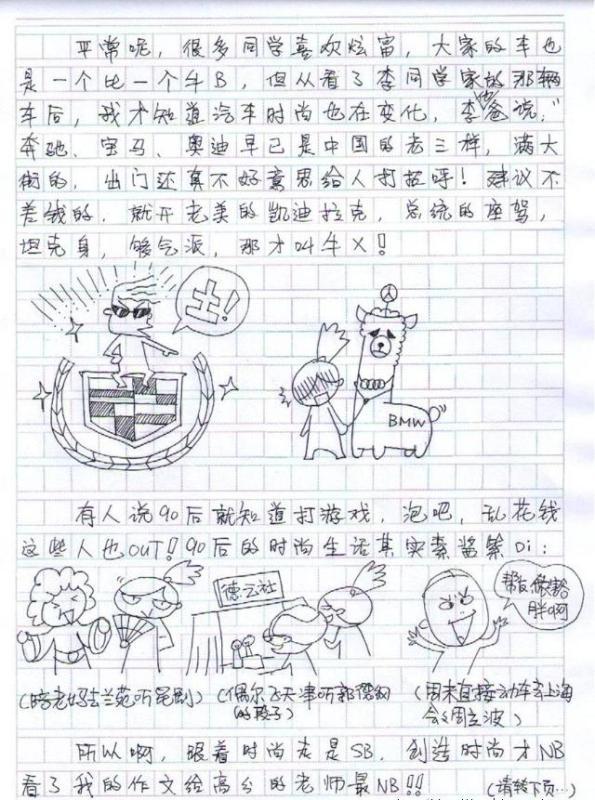 平常呢，很多同学喜欢炫富，大家的车也
是一个比一个牛B，但从看了李同学家的那辆
车后，我才知道汽车时尚也在变化，李他爸说，"
奔驰、宝马、奥迪早已是中国的老三样，满大
街的，出门还真不好意思给人打招呼！建议不
差钱的，就开老美的凯迪拉克，总统的座驾，
坦克身，够气派，那才叫牛X！
土！
BMW
有人说90后就知道打游戏，泡吧，乱花钱
这些人也OUT！90后的时尚生活其实素酱紫Di：
德云社
帮瓦做豁
胖啊
(陪老妈去兰苑听昆剧)
(偶尔飞天津听郭德纲
的段子)
(周末直接动车去上海
会会周立波)
所以啊，跟着时尚走是SB，创造时尚才NB
看了我的作文给高分的老师最NB！！
(请转下页…)